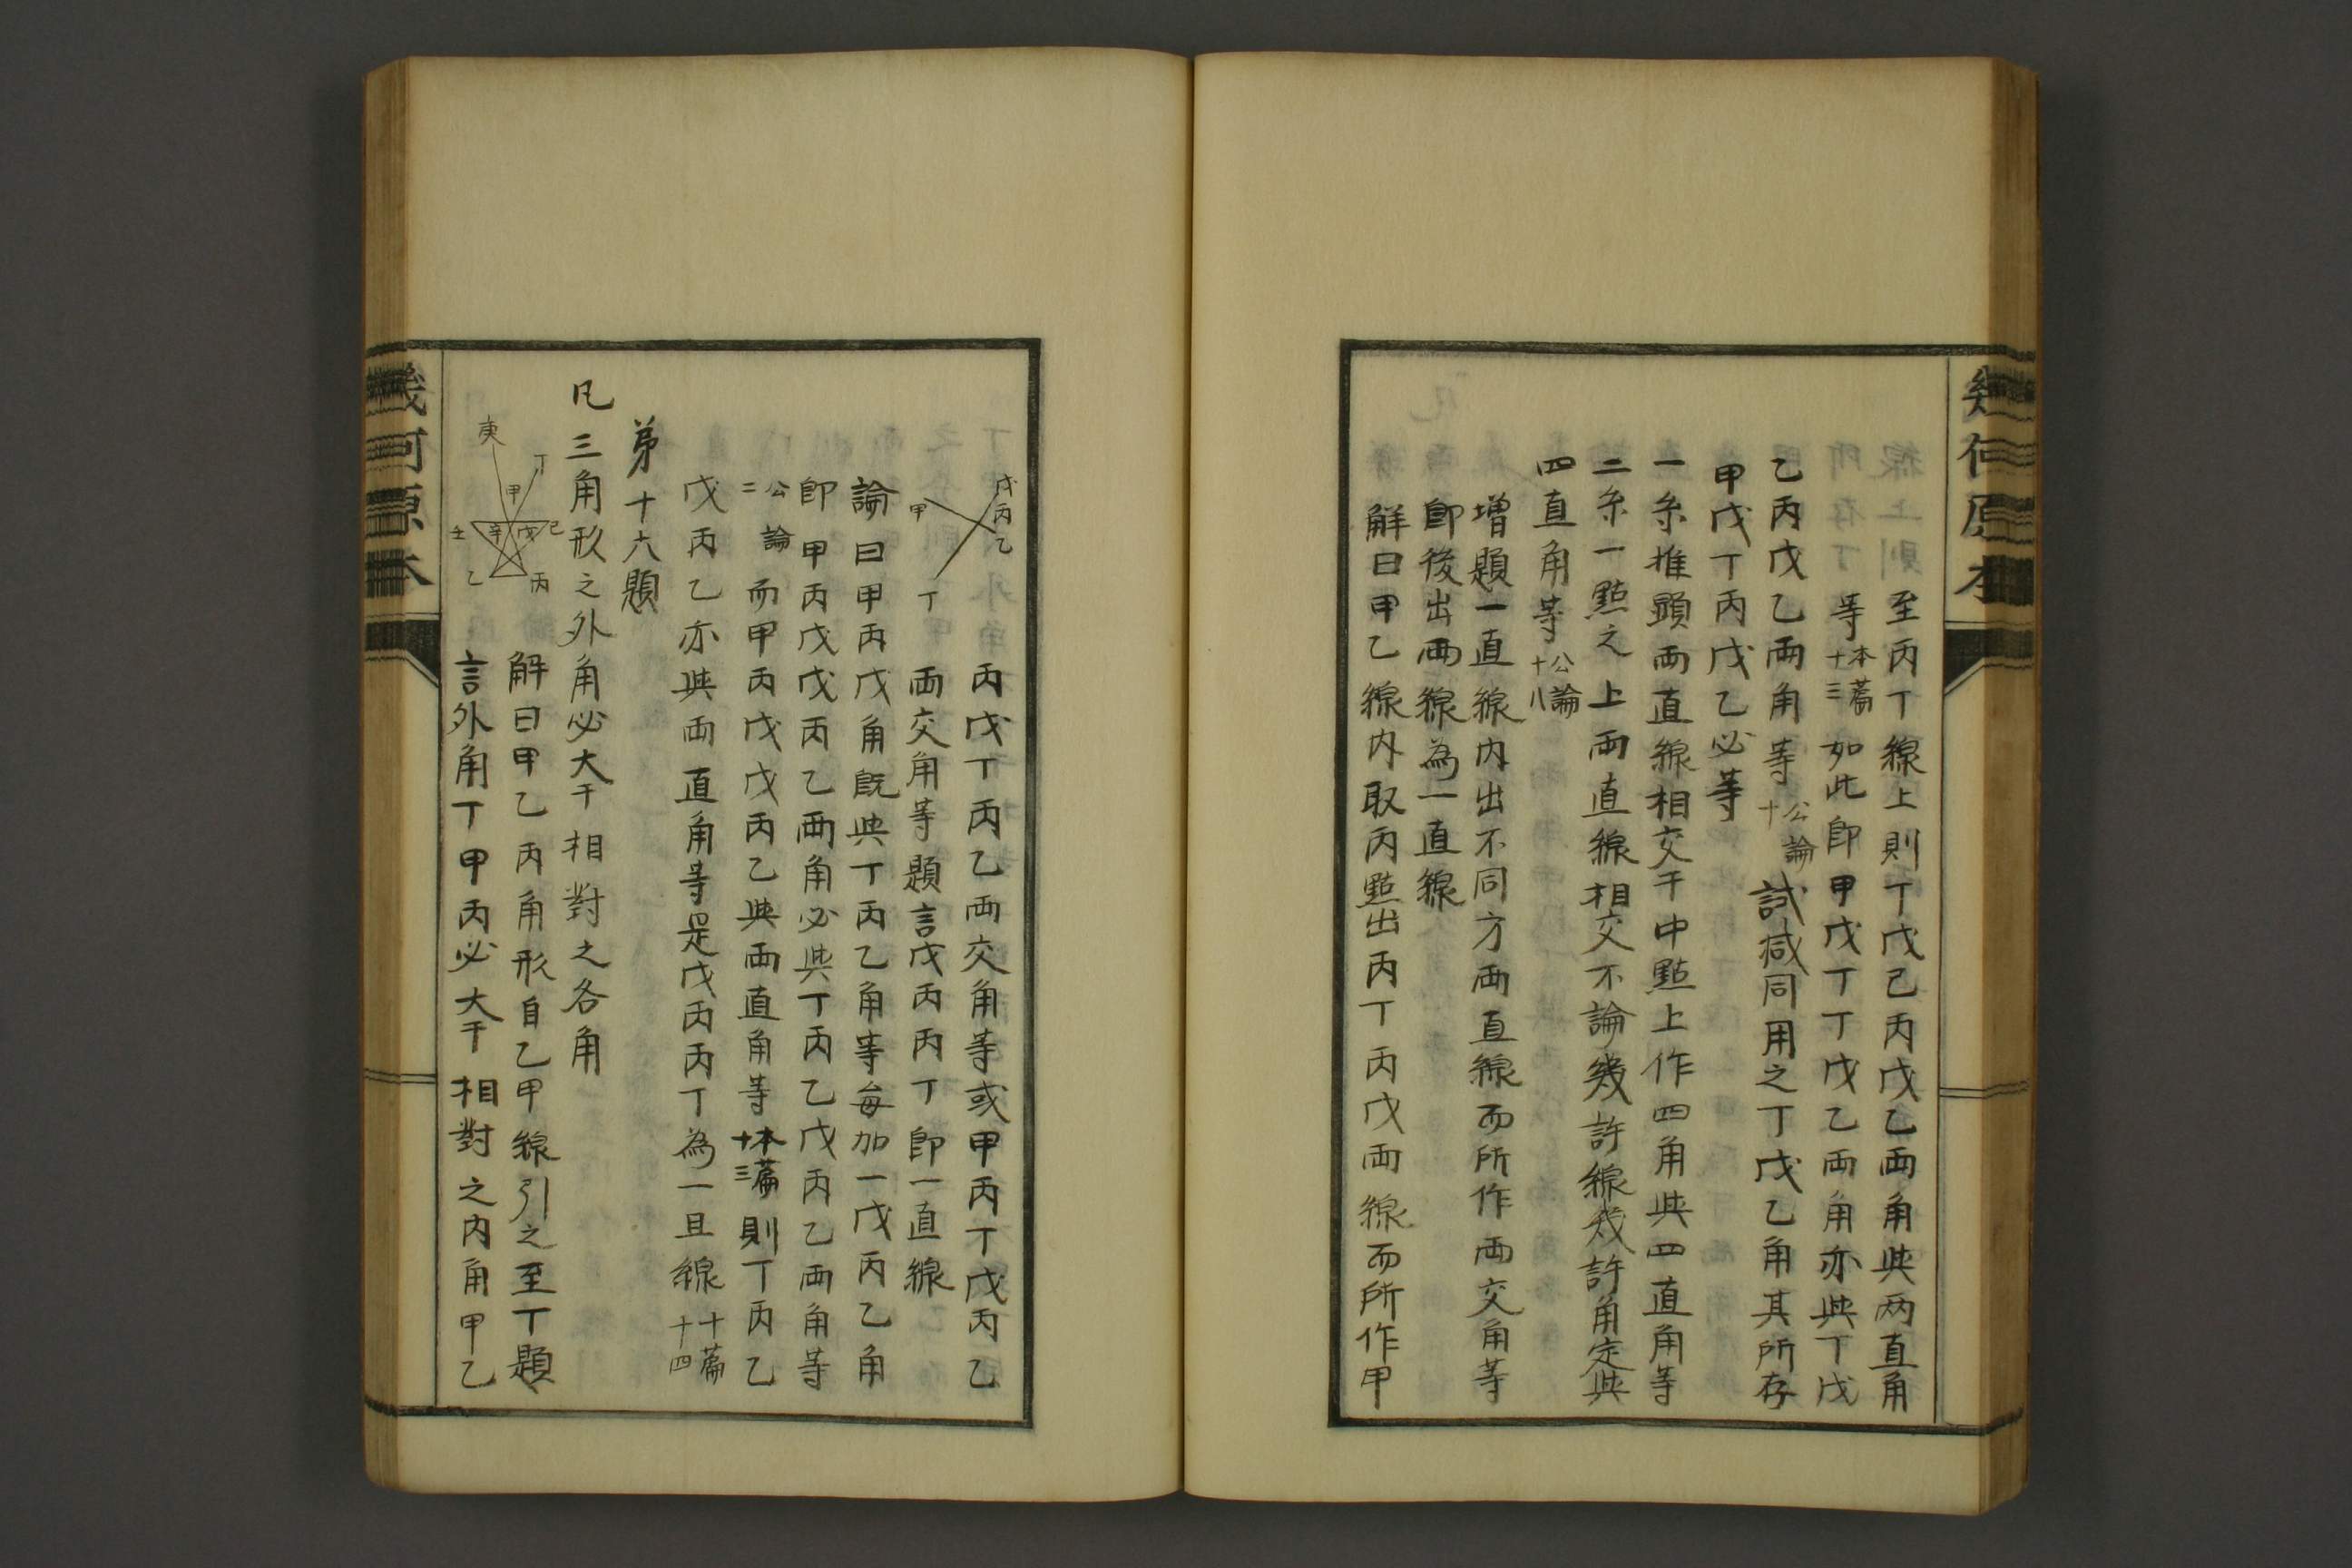 幾何原本
線上則至丙丁線上則丁戊己丙戊乙兩角與两直角
所存丁等本篇十三如此卽甲戊丁丁戊乙兩角亦與丁戊
乙丙戊乙兩角等公論十試减同用之丁戊乙角其所存
甲戊丁丙戊乙必等
一系推顕兩直線相交于中㸃上作四角與四直角等
二系一㸃之上兩直線相交不論幾許線幾許角定與
四直角等公論十八
增題一直線内出不同方兩直線而所作兩交角等
卽後出兩線為一直線
解曰甲乙線内取丙㸃出丙丁丙戊兩線而所作甲
丙戊丁丙乙兩交角等或甲丙丁戊丙乙
兩交角等題言戊丙丙丁卽一直線
戊丙乙
甲
丁
論曰甲丙戊角旣與丁丙乙角等每加一戊丙乙角
卽甲丙戊戊丙乙兩角必與丁丙乙戊丙乙兩角等
公論二而甲丙戊戊丙乙與兩直角等本篇十三則丁丙乙
戊丙乙亦與兩直角等是戊丙丙丁為一且線十篇十四
第十六題
凡三角形之外角必大于相對之各角
解曰甲乙丙角形自乙甲線引之至丁題
言外角丁甲丙必大于相對之内角甲乙
庚
丁
甲
己
戊
辛
壬
丙
乙
幾何原本